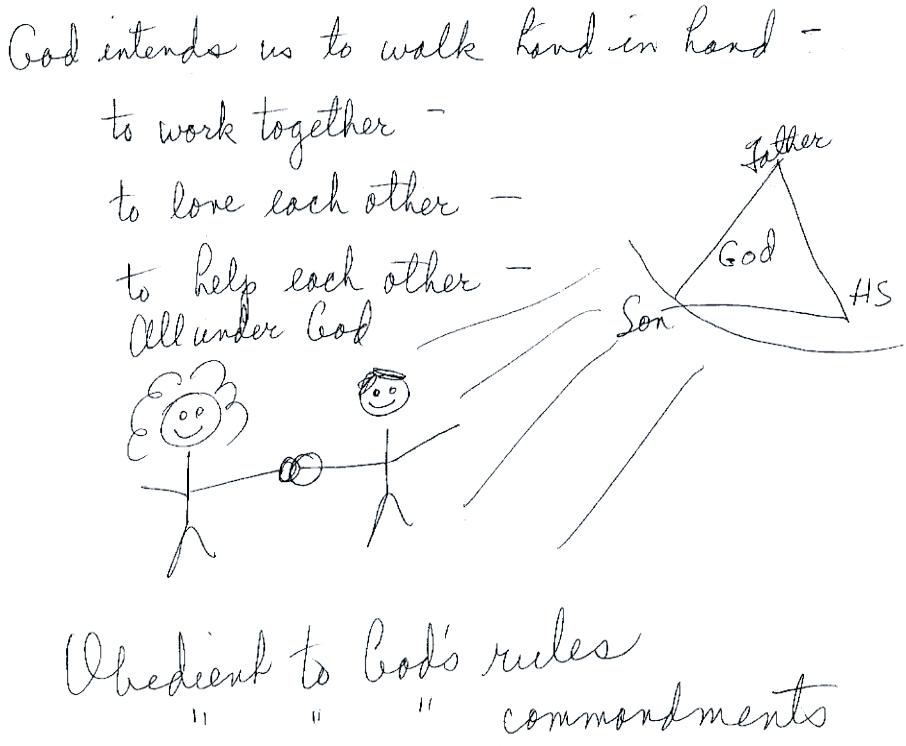 God intends us to walk hand in hand -
to work together -
to love each other -
to help each other -
All under God
Father
God
HS
Son
Obedient to God's rules
" " " commondments